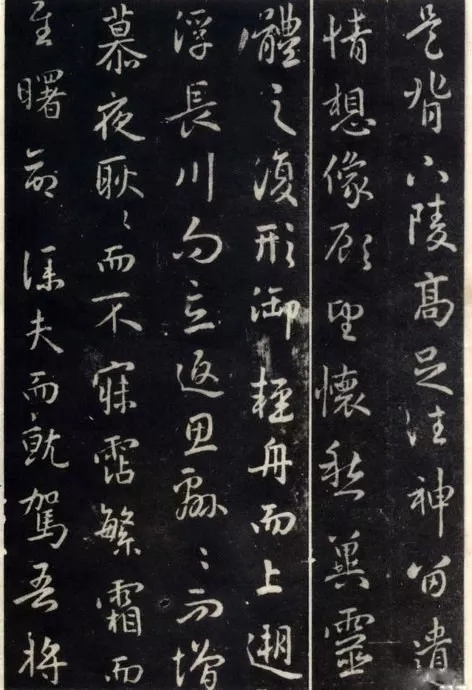 是背下陵高足往神留遺
情想像顧望懷愁冀靈
體之復形御輕舟而上遡
浮長川而忘返思綿〻而增
慕夜耿〻而不寐霑繁霜而
至曙命僕夫而就駕吾將